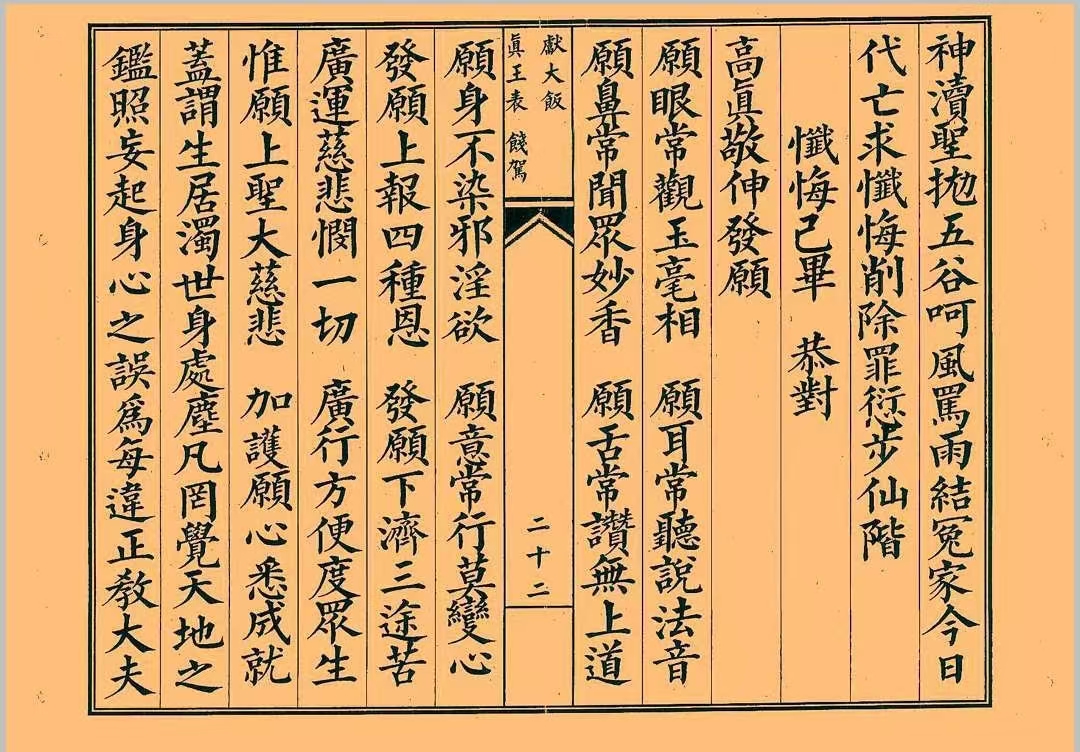 神瀆聖拋五谷呵風罵雨結冤家今日
代亡求懺悔削除罪衍愆步仙階
懺悔已畢　恭對
高眞敬伸發願
願眼常觀玉毫相　願耳常聽說法音
願鼻常聞眾妙香　願舌常讚無上道
獻大飯
眞王表　餞駕
二十二
願身不染邪淫欲　願意常行莫變心
發願上報四種恩　發願下濟三途苦
廣運慈悲憫一切　廣行方便度眾生
惟願上聖大慈悲　加護願心悉成就
蓋謂生居濁世身處塵凡罔覺天地之
鑑照妄起身心之誤爲每違正教大夫